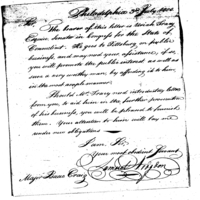 Philadelphia 3d July 1800
Sir
The bearer of this letter is Uriah Tracy
Esquire Senator in Congress for the State of
Connecticut. He goes to Pittsburg on public
business, and may need your assistance, if so,
you will promote the public interest as well as
serve a very worthy man, by affording it to him,
in the most ample manner.
Should Mr. Tracy need introductory letters
from you, to aid him in the further prosecution
of his business, you will please to furnish
them. Your attention to him will lay me
under new obligations
I am Sir,
Your most obedient Servant
Major Isaac Craig